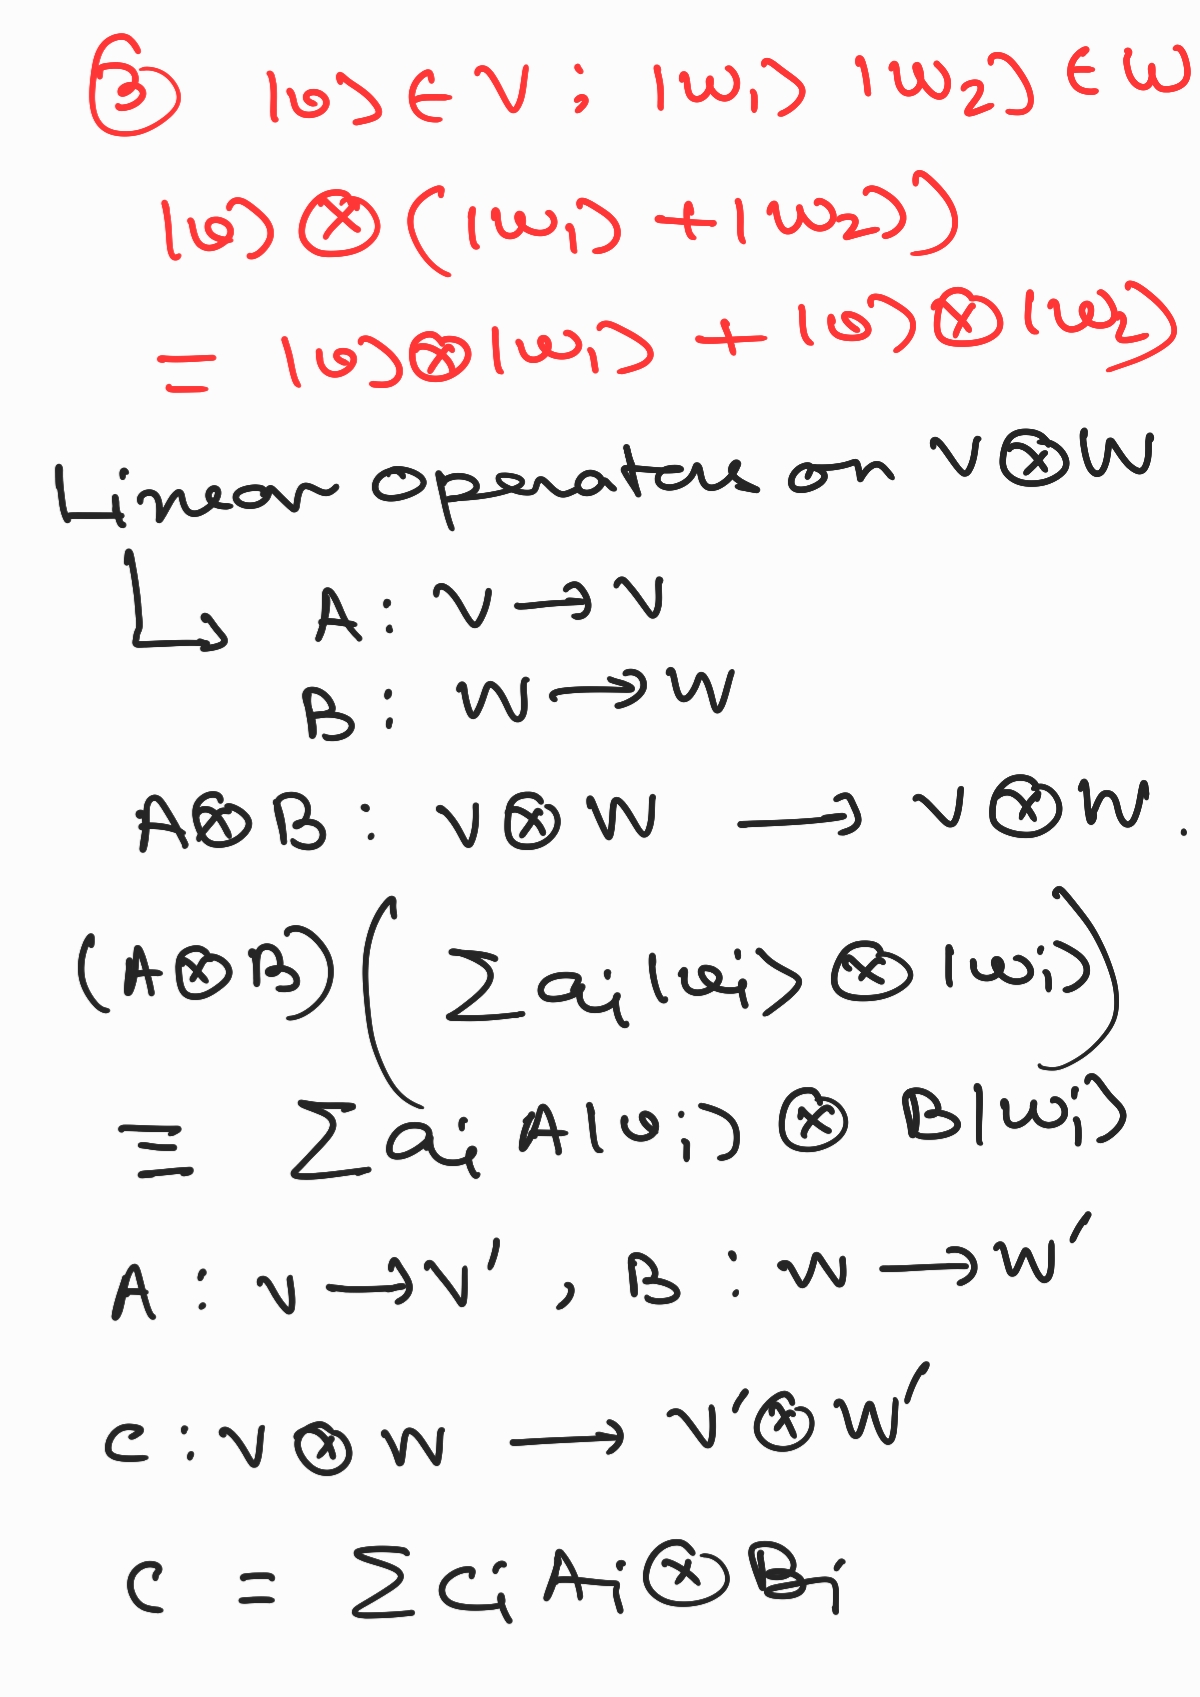 ③ |v⟩ ∈ V ; |w₁⟩ |w₂⟩ ∈ W
|v⟩ ⊗ (|w₁⟩ + |w₂⟩)
= |v⟩ ⊗ |w₁⟩ + |v⟩ ⊗ |w₂⟩
Linear operators on V ⊗ W
↳ A : V → V
B : W → W
A ⊗ B : V ⊗ W → V ⊗ W .
(A ⊗ B) ( ∑ aᵢ |vᵢ⟩ ⊗ |wᵢ⟩ )
≡ ∑ aᵢ A|vᵢ⟩ ⊗ B|wᵢ⟩
A : V → V′ , B : W → W′
C : V ⊗ W → V′ ⊗ W′
C = ∑ cᵢ Aᵢ ⊗ Bᵢ